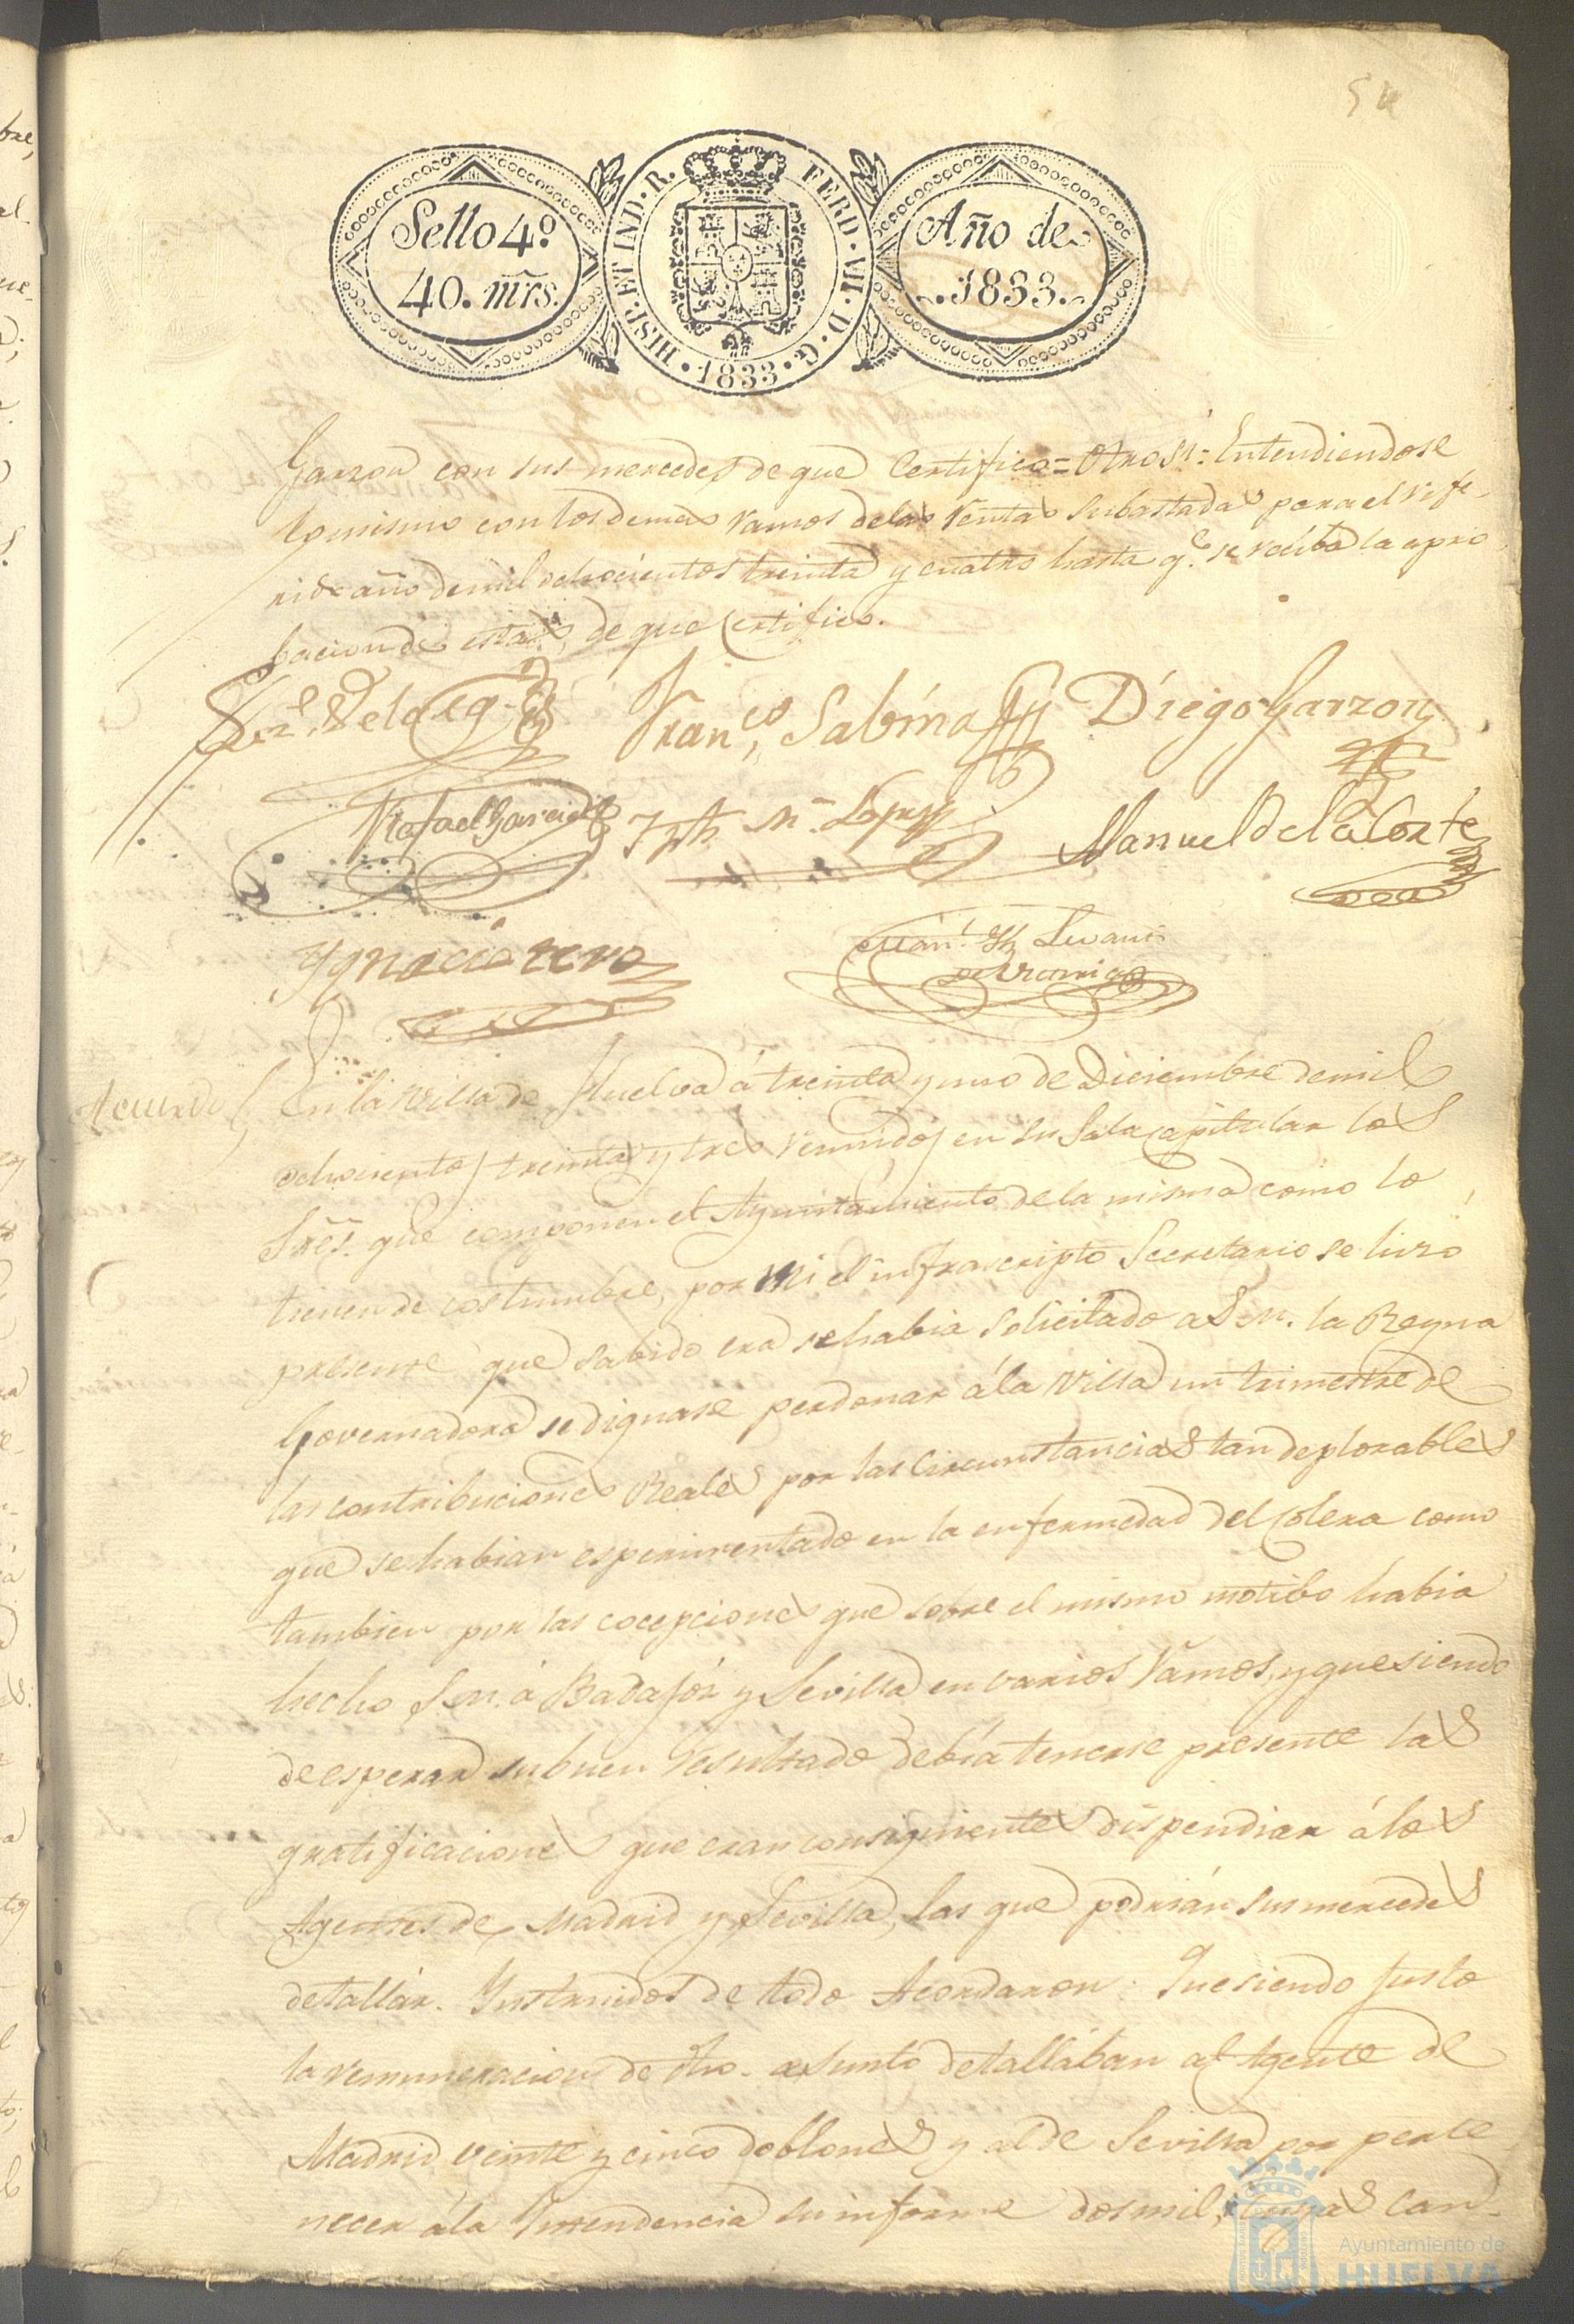 54
Sello 4º
40. mrs.
HISP. ET IND. R. FERD. VII. D. G. 1833.
Año de
1833.
Garzon con sus mercedes de que Certifico = Otrosi: Entendiendose
lo mismo con los demas ramos de las Rentas Subastadas para el refe-
rido año de mil ochocientos treinta y cuatro hasta q.e se reciba la apro
bacion de estas, de que Certifico.
Fran.co Sabina Diego Garzon
Rafael Garcia Lopez Manuel de la Corte
Ygnacio
Acuerdo
En la Villa de Huelva á treinta y uno de Diciembre de mil
ochocientos treinta y tres reunidos en su Sala Capitular los
Sres. que componen el Ayuntamiento de la misma como lo
tienen de costumbre, por Mi el infrascripto Secretario se hizo
presente que sabido era se habia Solicitado a S. M. la Reyna
Governadora se dignase perdonar á la Villa un trimestre de
las contribuciones Reales por las Circunstancias tan deplorables
que se habian esperimentado en la enfermedad del Colera como
tambien por las cocepciones que sobre el mismo motibo habia
hecho S. M. á Badajóz y Sevilla en varios Ramos, y que siendo
de esperar su buen resultado debía tenerse presente las
gratificaciones que eran consiguientes dispendiar á los
Agentes de Madrid y Sevilla, las que podrián sus mercedes
detallár. Instruidos de todo Acordaron: Que siendo justo
la remuneracion de dho. asunto detallában al Agente de
Madrid veinte y cinco doblones y al de Sevilla por perte
necer á la Intendencia su informe dos mil, cuyas can-
Ayuntamiento de
HUELVA